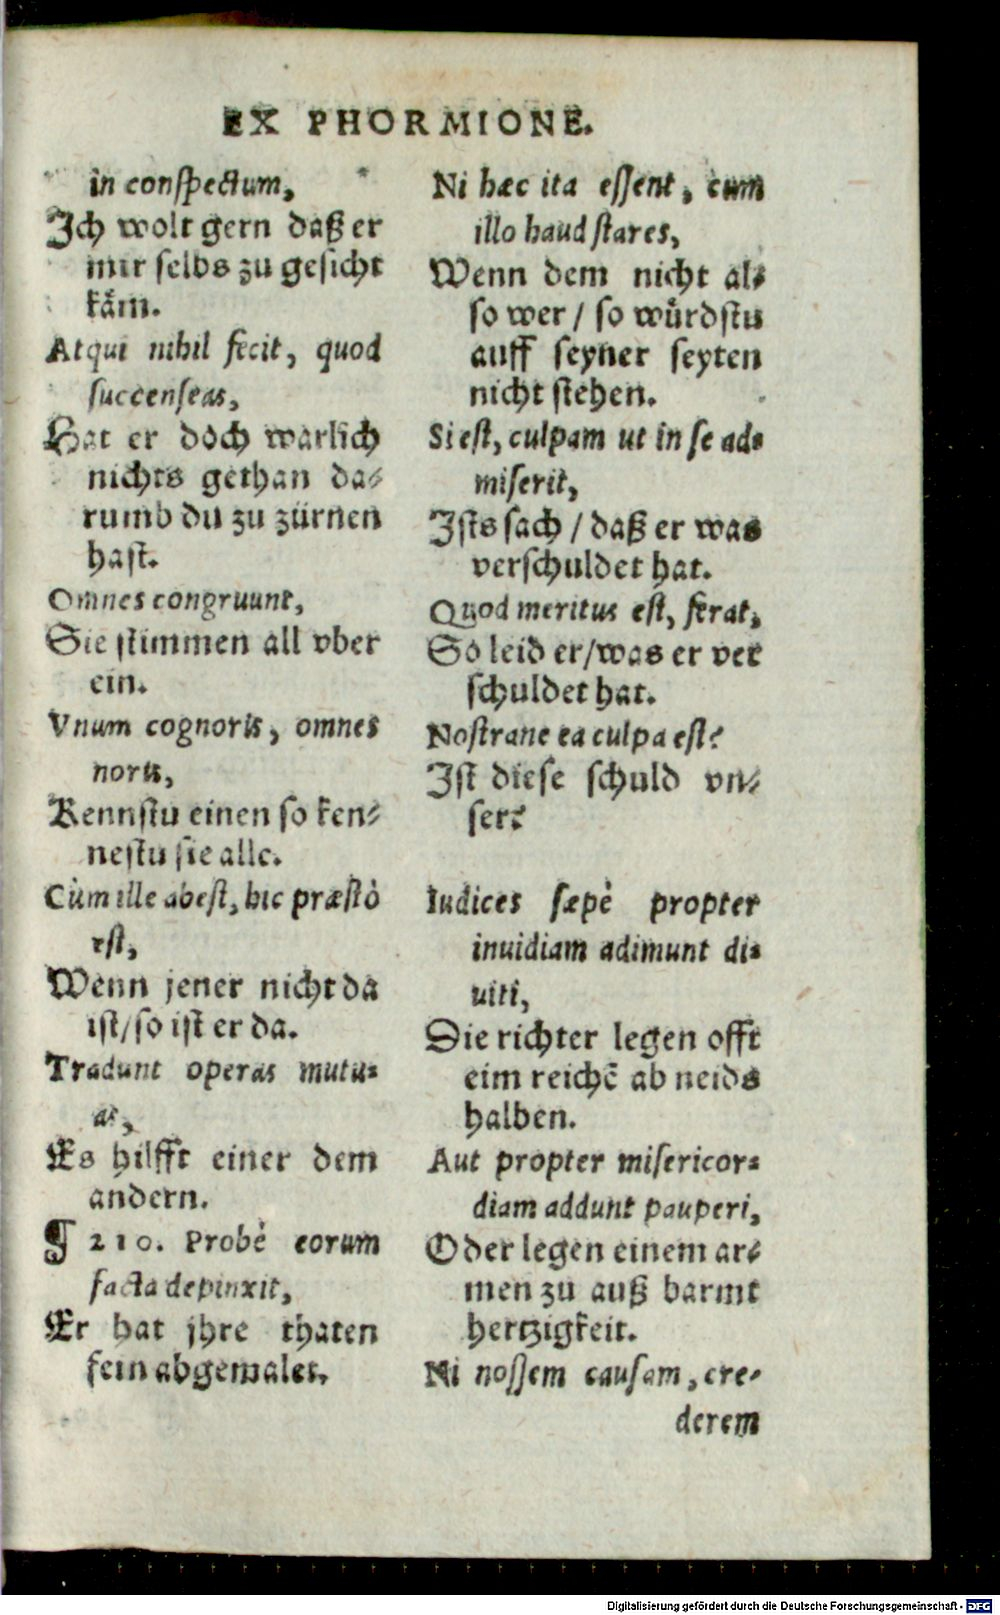 EX PHORMIONE.
in conspectum,
Ich wolt gern daß er
mir selbs zu gesicht
kåm.
Atqui nihil fecit, quod
succenseas,
Hat er doch warlich
nichts gethan da-
rumb du zu zürnen
hast.
Omnes congruunt,
Sie stimmen all vber
ein.
Vnum cognoris, omnes
noris,
Kennstu einen so ken-
nestu sie alle.
Cùm ille abest, hic præstò
est,
Wenn jener nicht da
ist/so ist er da.
Tradunt operas mutu-
as,
Es hilfft einer dem
andern.
¶ 210. Probè eorum
facta depinxit,
Er hat jhre thaten
fein abgemalet.
Ni hæc ita essent, cum
illo haud stares,
Wenn dem nicht al-
so wer / so wůrdstu
auff seyner seyten
nicht stehen.
Si est, culpam ut in se ad-
miserit,
Ists sach / daß er was
verschuldet hat.
Quod meritus est, ferat,
So leid er/was er ver
schuldet hat.
Nostrane ea culpa est?
Ist diese schuld vn-
ser?
Iudices sæpè propter
inuidiam adimunt di-
uiti,
Die richter legen offt
eim reichẽ ab neids
halben.
Aut propter misericor-
diam addunt pauperi,
Oder legen einem ar-
men zu auß barmt
hertzigkeit.
Ni nossem causam, cre-
derem
Digitalisierung gefördert durch die Deutsche Forschungsgemeinschaft - DFG